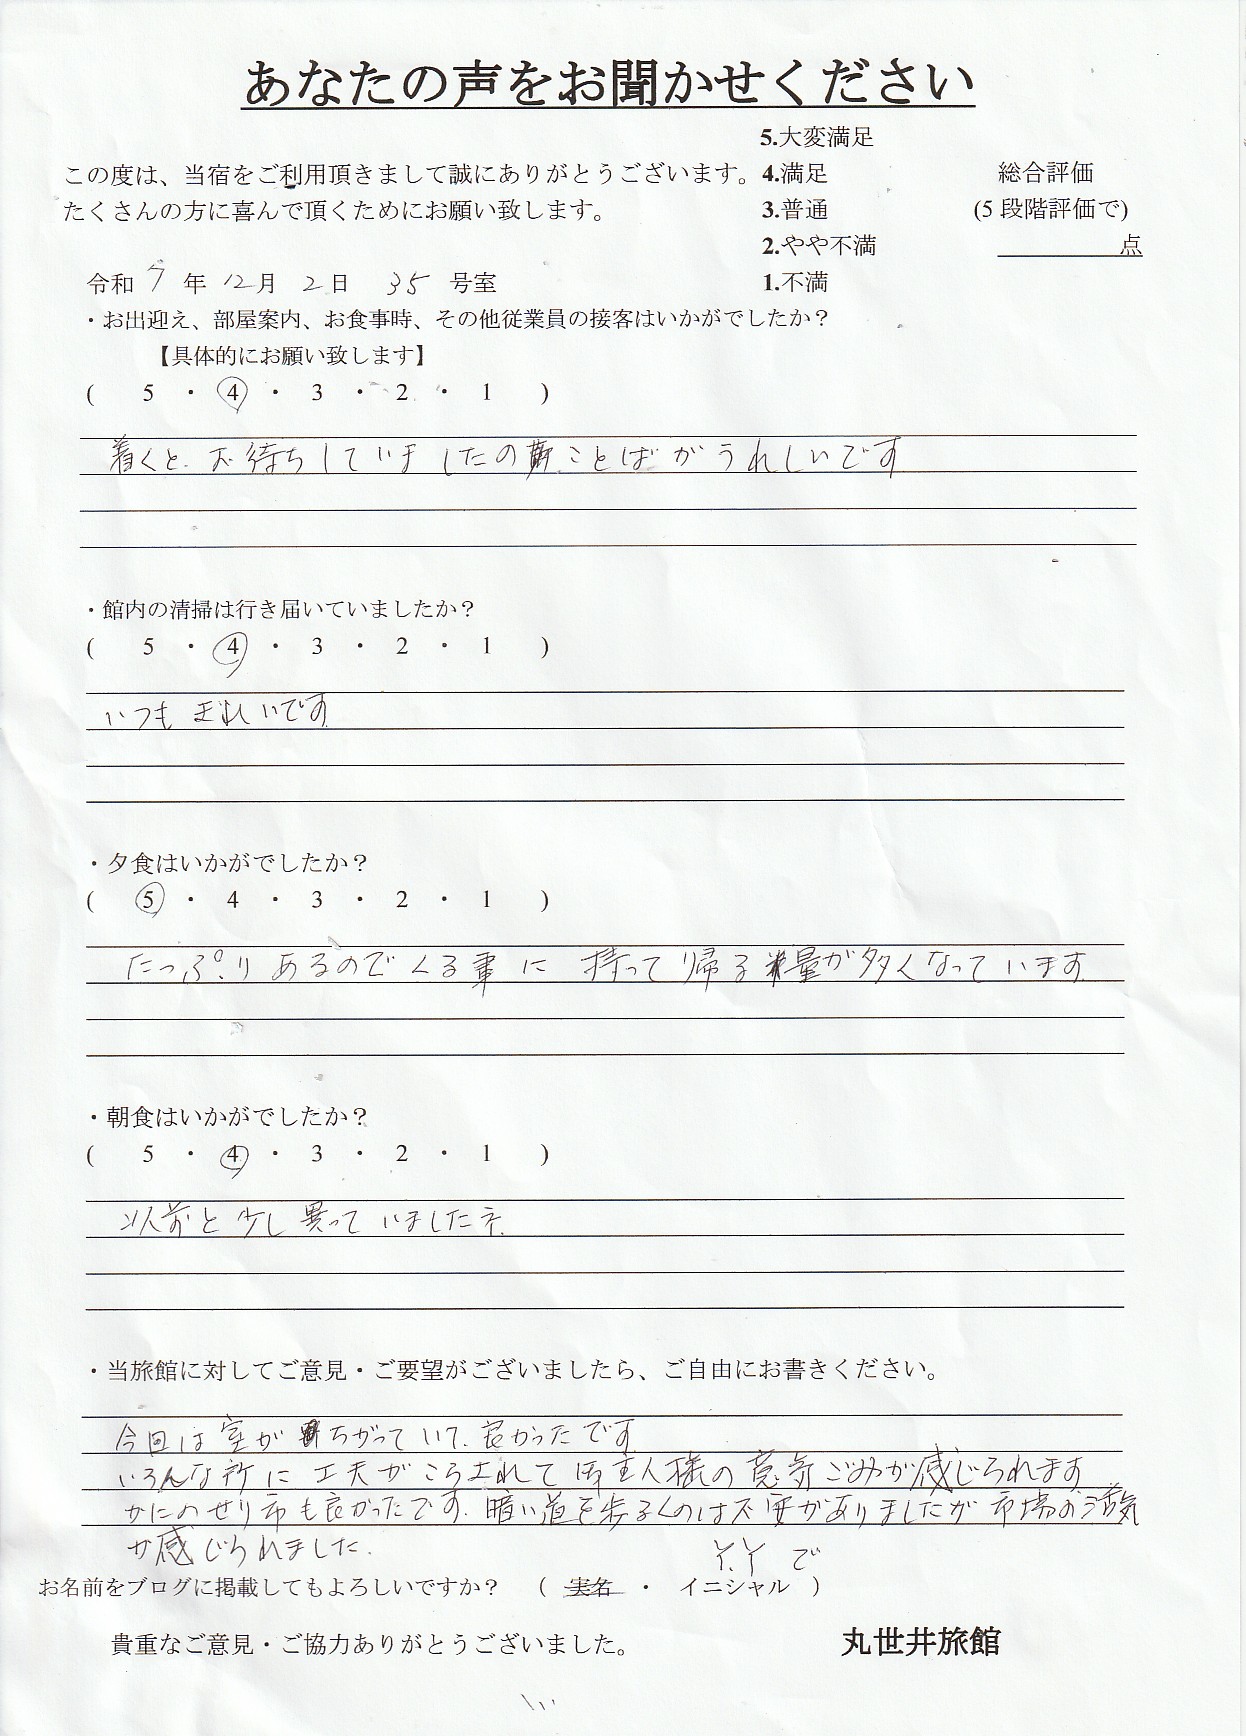 あなたの声をお聞かせください
5.大変満足
この度は、当宿をご利用頂きまして誠にありがとうございます。4.満足 総合評価
たくさんの方に喜んで頂くためにお願い致します。 3.普通 (5段階評価で)
2.やや不満 点
令和 7 年 12月 2日 35 号室 1.不満
・お出迎え、部屋案内、お食事時、その他従業員の接客はいかがでしたか?
【具体的にお願い致します】
( 5 ・ 4 ・ 3 ・ 2 ・ 1 )
着くと、お待ちしていましたのことばがうれしいです
・館内の清掃は行き届いていましたか?
( 5 ・ 4 ・ 3 ・ 2 ・ 1 )
いつもきれいです
・夕食はいかがでしたか?
( 5 ・ 4 ・ 3 ・ 2 ・ 1 )
たっぷりあるのでくる事に 持って帰る量が多くなっています
・朝食はいかがでしたか?
( 5 ・ 4 ・ 3 ・ 2 ・ 1 )
以前と少し異っていましたネ
・当旅館に対してご意見・ご要望がございましたら、ご自由にお書きください。
今回は室がちがっていて、良かったです
いろんな所に工夫がこらされて御主人様の意気ごみが感じられます
かにのせり市も良かったです。暗い道を歩るくのは不安がありましたが市場の活気
が感じられました。
Y.Y で
お名前をブログに掲載してもよろしいですか? ( 実名 ・ イニシャル )
貴重なご意見・ご協力ありがとうございました。 丸世井旅館